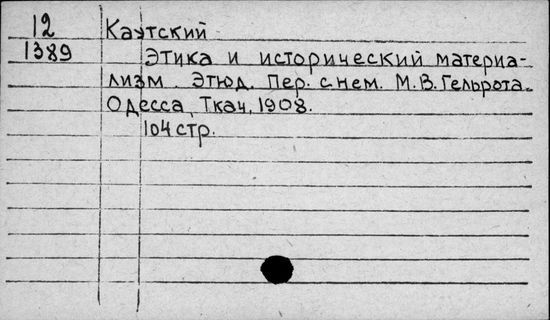 12 Каутский
1389 Этика и исторический материа-
лизм. Этюд. Пер. с нем. М.В. Гельрота.
Одесса, Ткач, 1908.
104 стр.